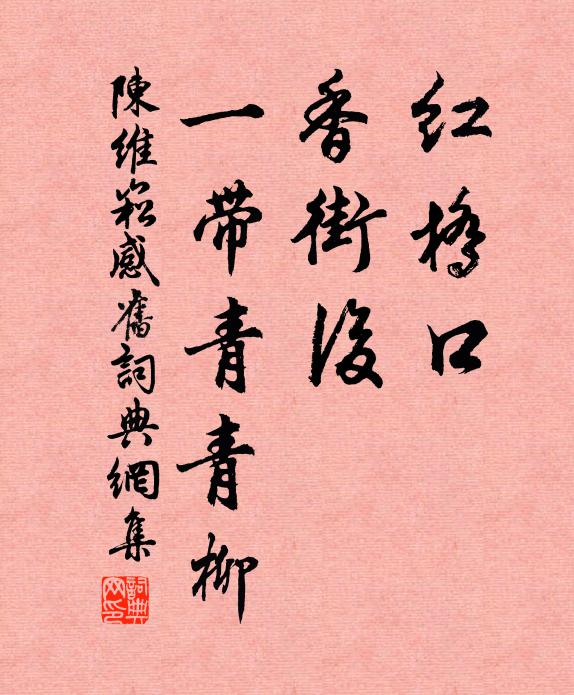 红橋口
香街後
一带青青柳
陳維崧感舊詞典網集
詞典網印